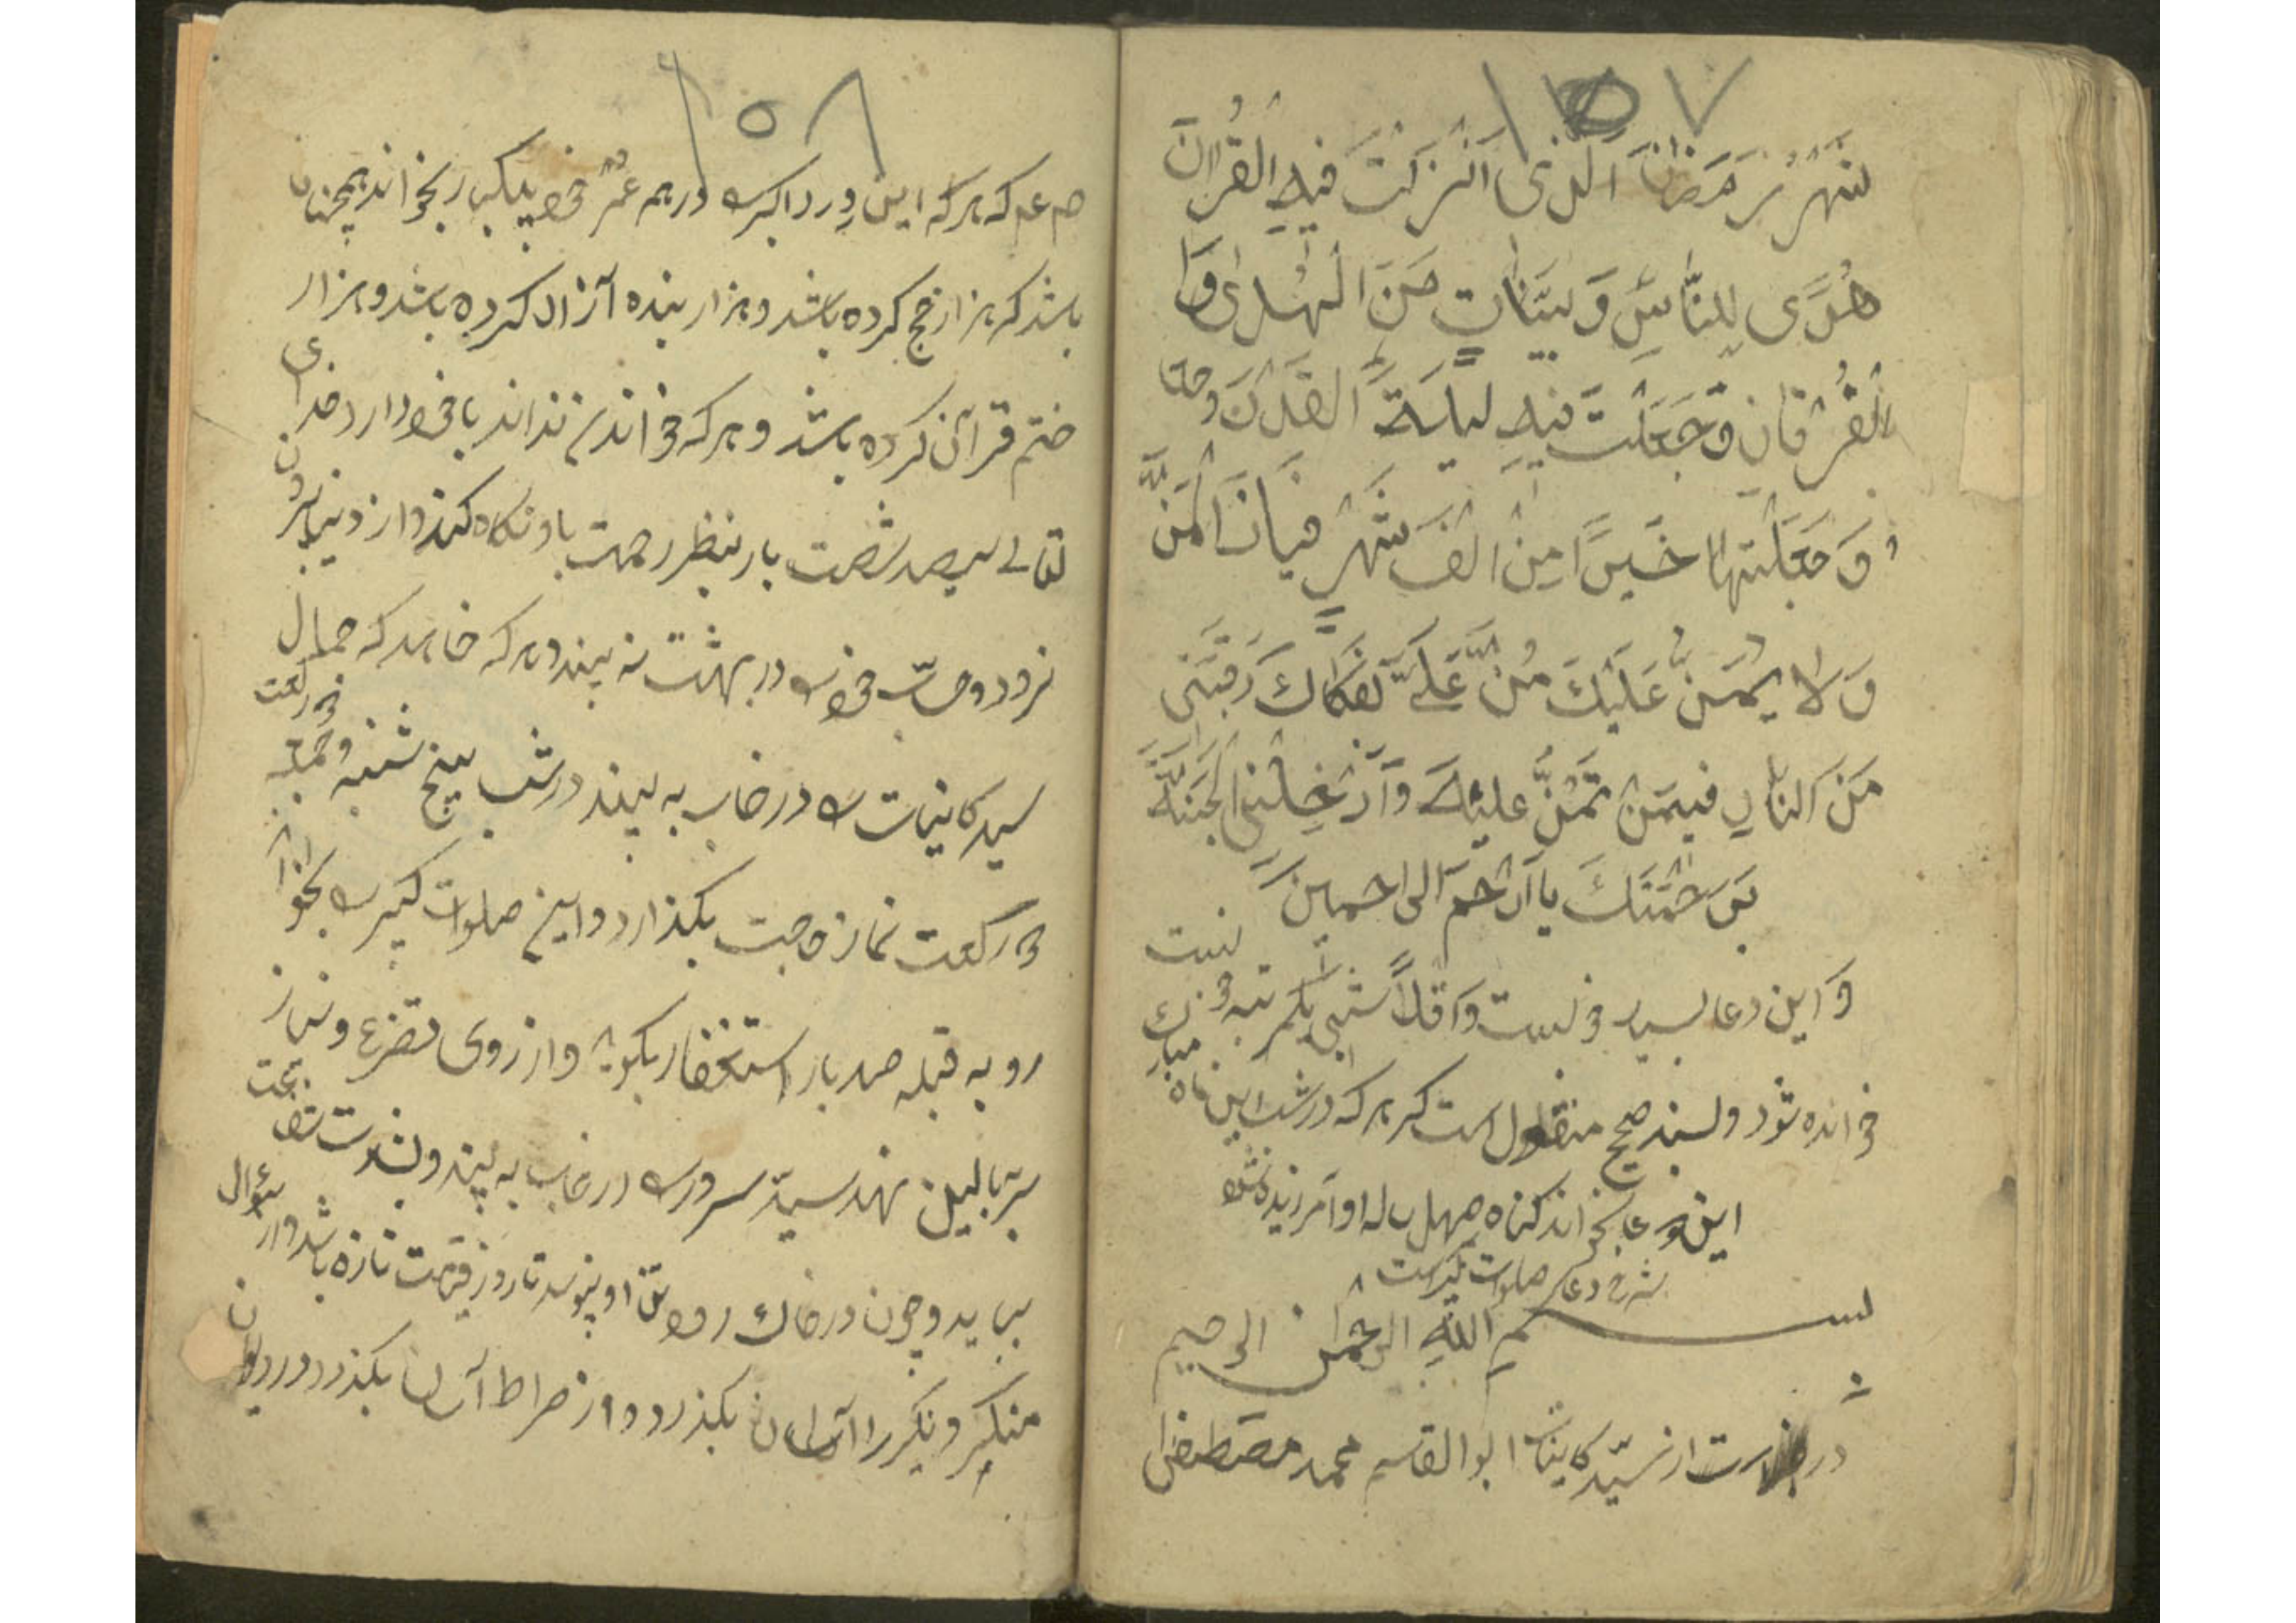 ١٥٧
شَهْرُ رَمَضَانَ الَّذِی اَنْزَلْتَ فِیهِ الْقُرْاٰنَ
هُدًی لِلنَّاسِ وَ بَیِّنَاتٍ مِنَ الْهُدٰی وَ
الْفُرْقَانِ وَ جَعَلْتَ فِیهِ لَیْلَةَ الْقَدْرِ
وَ جَعَلْتَهَا خَیْرًا مِنْ اَلْفِ شَهْرٍ فَیَاذَا الْمَنِّ
وَ لَا یُمَنُّ عَلَیْكَ مُنَّ عَلَیَّ بِفَكَاكِ رَقَبَتِی
مِنَ النَّارِ فِیمَنْ تَمُنُّ عَلَیْهِ وَ اَدْخِلْنِی الْجَنَّةَ
بِرَحْمَتِكَ یَا اَرْحَمَ الرَّاحِمِینَ
و این دعا بسیار خوبست و اقلاً شبی یکمرتبه
خوانده شود و بسند صحیح منقول است که هر که در شب این ماه مبارك
این دعا بخواند گناه چهل ساله او آمرزیده شود
شرح دعا صلوات کبیر است
بسم اللّٰهِ الرحمٰن الرحیم
در از سیّد کاینات ابو القاسم محمد مصطفی
١٥٨
صم عم که هر که این ورد اکبر در همه عمر خود یکبار بخواند همچنان
باشد که هزار حج کرده باشد و هزار بنده آزاد کرده باشد و هزار
ختم قرآن کرده باشد و هر که خواندن نداند با خود دارد خدای
تعالے سیصد شصت بار بنظر رحمت باو نگاه کند و از دنیا بیرون
نرود و جای خود در بهشت نه بیند و هر که خاهد که جمال
سید کاینات را در خاب به بیند در شب پنج شنبه و جمعه
دو رکعت نماز حاجت بگذارد و این صلوات کبیر را بخواند
رو به قبله صد بار استغفار بگوید و از روی تضرع و نیاز
سر ببالین نهد سید سرور را در خاب به بیند و بشارت شفاعت
بیابد و چون در خاك رود تن او نپوسد تا روز قیامت تازه باشد و از سؤال
منکر و نکیر را آسان بگذرد و از صراط آسان بگذرد و در